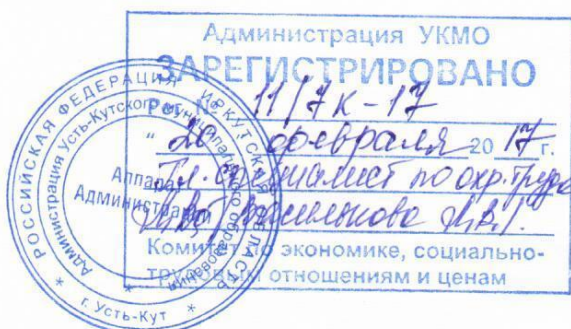 Администрация УКМО
ЗАРЕГИСТРИРОВАНО
Рег. № 11/7к-17
"20 февраля 2017 г.
Гл. специалист по охр. труда
Василькова
Комитет по экономике, социально-
трудовым отношениям и ценам
РОССИЙСКАЯ ФЕДЕРАЦИЯ ИРКУТСКАЯ ОБЛАСТЬ
Администрация Усть-Кутского муниципального образования
Аппарат
Администрации
г. Усть-Кут